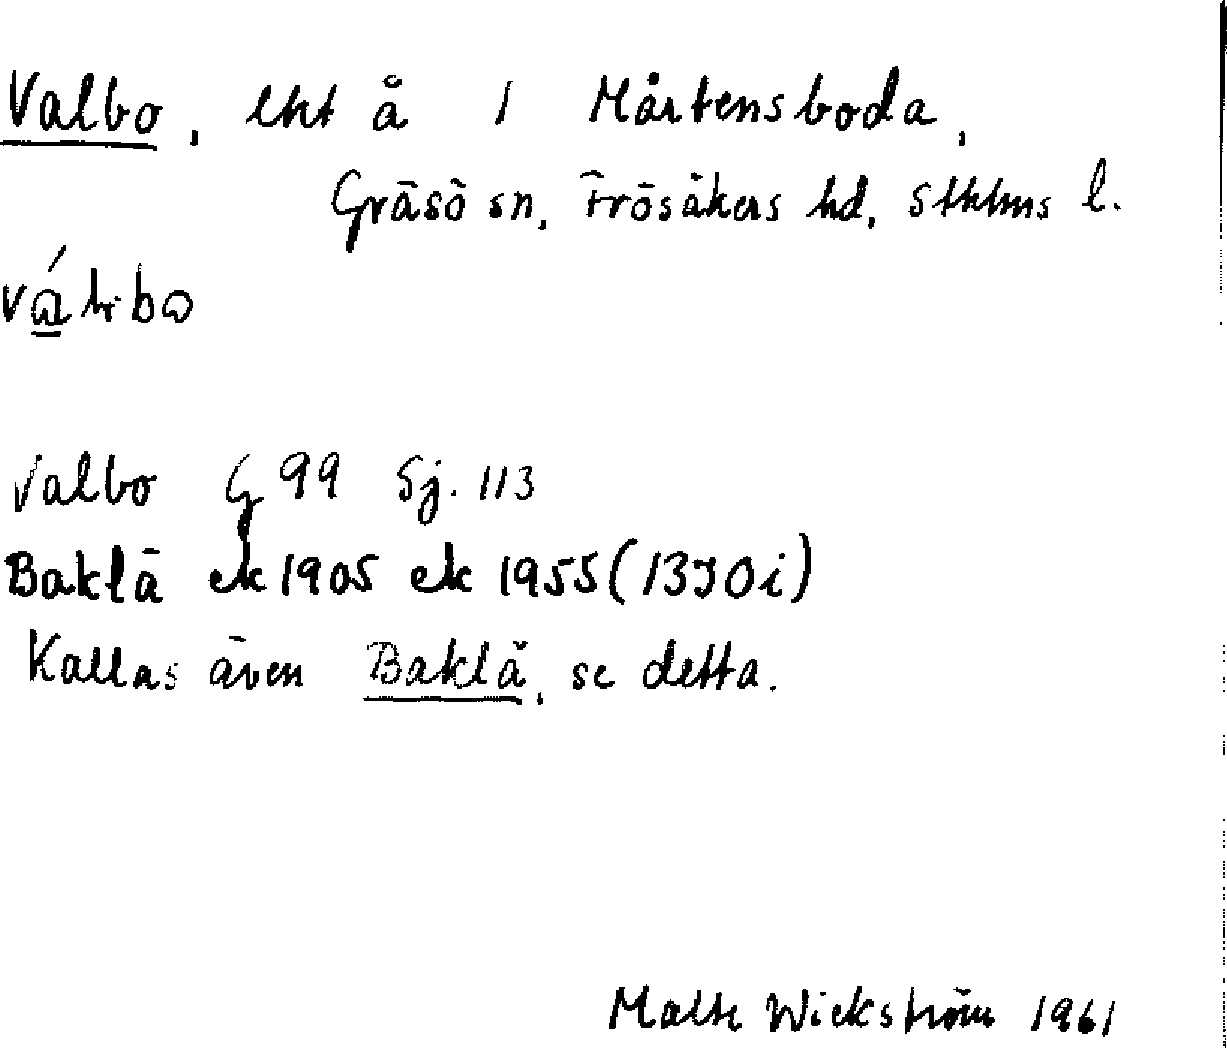 Valbo, lht å 1 Mårtensboda,
Gräsö sn, Frösåkers hd, Sthlms l.
Valbo G 99 Sj. 113
Baklä ek 1905 ek 1955 (13J0i)
Kallas även Baklä, se detta.
Malte Wickström 1961